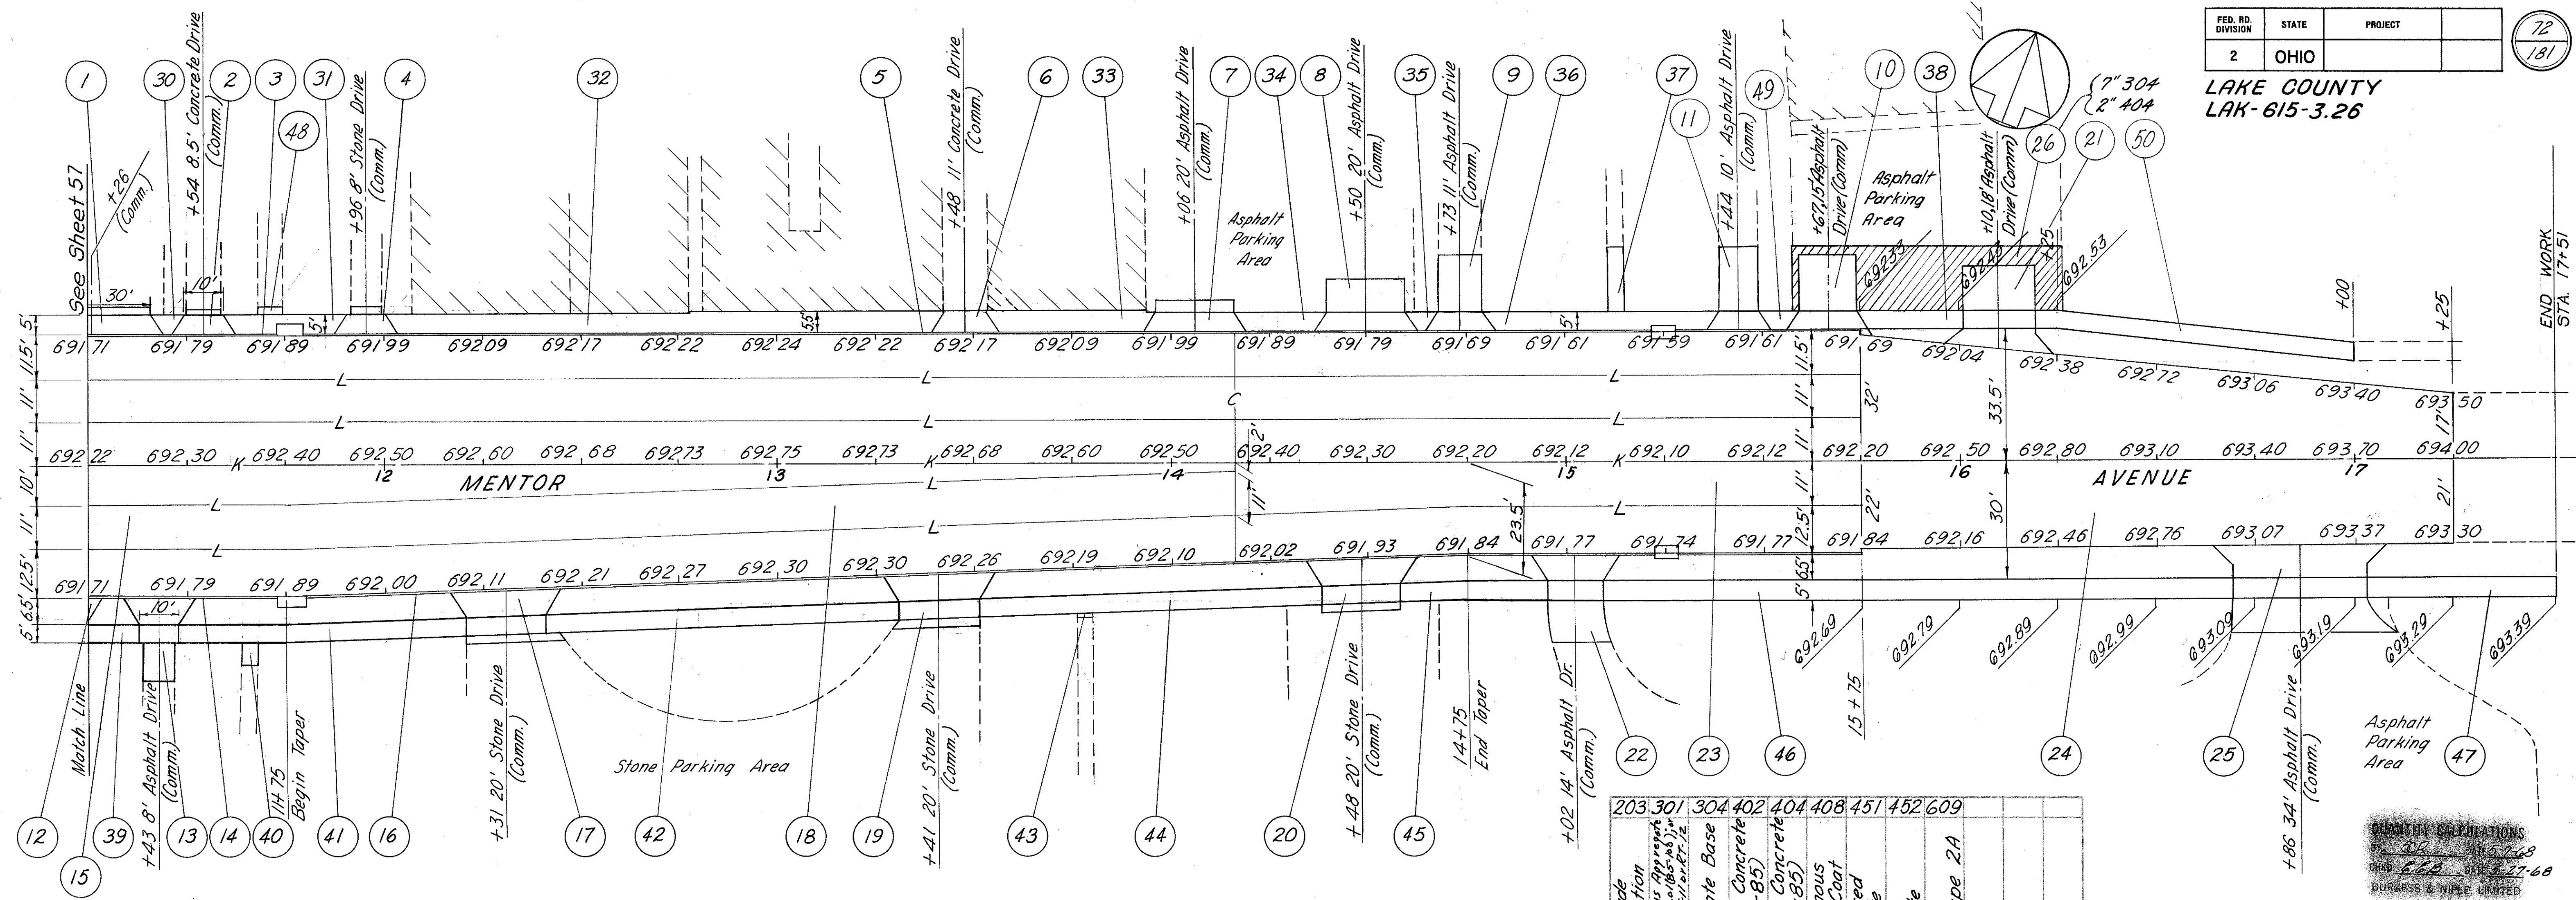 FED. RD. DIVISION STATE PROJECT
2 OHIO
72
181
LAKE COUNTY
LAK-615-3.26
1 30 2 3 31 4 32 5 6 33 7 34 8 35 9 36 37 11 49 10 38 26 21 50
48
7" 304
2" 404
See Sheet 57
+26 (Comm.)
+54 8.5' Concrete Drive (Comm.)
+96 8' Stone Drive (Comm.)
+48 11' Concrete Drive (Comm.)
+06 20' Asphalt Drive (Comm.)
Asphalt Parking Area
+50 20' Asphalt Drive (Comm.)
+73 11' Asphalt Drive (Comm.)
+44 10' Asphalt Drive (Comm.)
+67,15' Asphalt Drive (Comm)
Asphalt Parking Area
+10,18' Asphalt Drive (Comm)
+25
692.53
692.43
692.33
+00
+25
END WORK STA. 17+51
30' 10' 5' 5.5' 5'
691.71 691.79 691.89 691.99 692.09 692.17 692.22 692.24 692.22 692.17 692.09 691.99 691.89 691.79 691.69 691.61 691.59 691.61 691.69 692.04 692.38 692.72 693.06 693.40 693.50
5' 11.5' 11' 11' 10' 11' 12.5' 6.5' 5'
L L L
L L L
C
11.5' 11' 11' 11' 12.5' 6.5' 5'
32' 22' 33.5' 30' 17' 21'
692.22 692.30 692.40 692.50 692.60 692.68 692.73 692.75 692.73 692.68 692.60 692.50 692.40 692.30 692.20 692.12 692.10 692.12 692.20 692.50 692.80 693.10 693.40 693.70 694.00
K K K
12 13 14 15 16 17
MENTOR AVENUE
2' 11' 23.5'
L L L
L L
691.71 691.79 691.89 692.00 692.11 692.21 692.27 692.30 692.30 692.26 692.19 692.10 692.02 691.93 691.84 691.77 691.74 691.77 691.84 692.16 692.46 692.76 693.07 693.37 693.30
10'
692.69 692.79 692.89 692.99 693.09 693.19 693.29 693.39
Match Line
+43 8' Asphalt Drive (Comm.)
11+75 Begin Taper
+31 20' Stone Drive (Comm.)
Stone Parking Area
+41 20' Stone Drive (Comm.)
+48 20' Stone Drive (Comm.)
14+75 End Taper
+02 14' Asphalt Dr. (Comm.)
15+75
+86 34' Asphalt Drive (Comm.)
Asphalt Parking Area
22 23 46 24 25 47
12 39 13 14 40 41 16 17 42 18 19 43 44 20 45
15
203 301 304 402 404 408 451 452 609
QUANTITY CALCULATIONS
DATE 5-7-68
CHKD. DATE 5-27-68
BURGESS & NIPLE, LIMITED